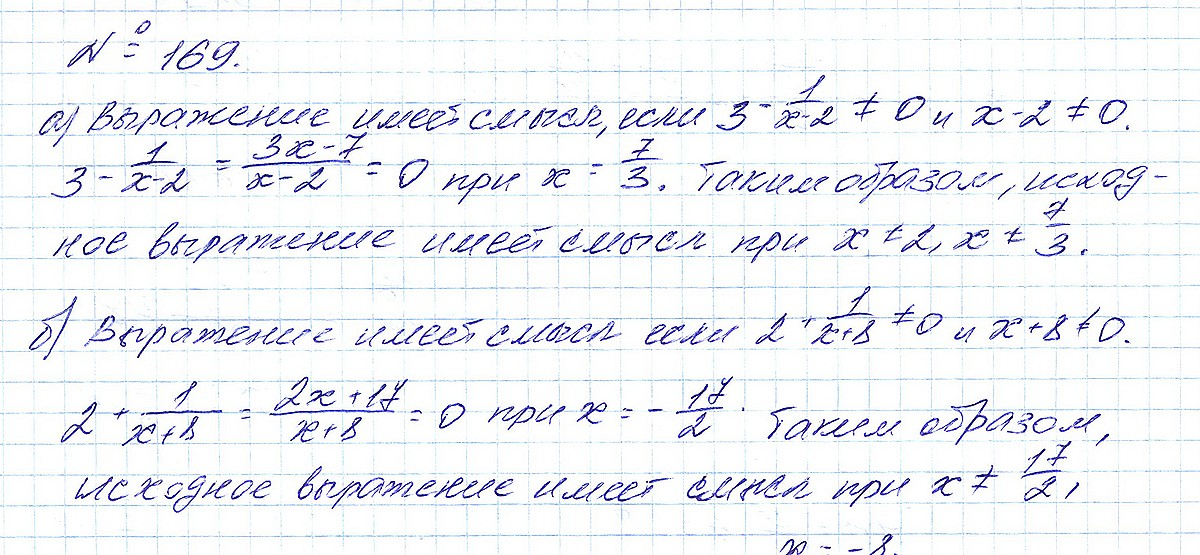 № 169.
а) Выражение имеет смысл, если 3 - 1/(x-2) ≠ 0 и x-2 ≠ 0.
3 - 1/(x-2) = (3x-7)/(x-2) = 0 при x = 7/3. Таким образом, исход-
ное выражение имеет смысл при x ≠ 2, x ≠ 7/3.
б) Выражение имеет смысл если 2 + 1/(x+8) ≠ 0 и x+8 ≠ 0.
2 + 1/(x+8) = (2x+17)/(x+8) = 0 при x = -17/2. Таким образом,
исходное выражение имеет смысл при x ≠ 17/2,